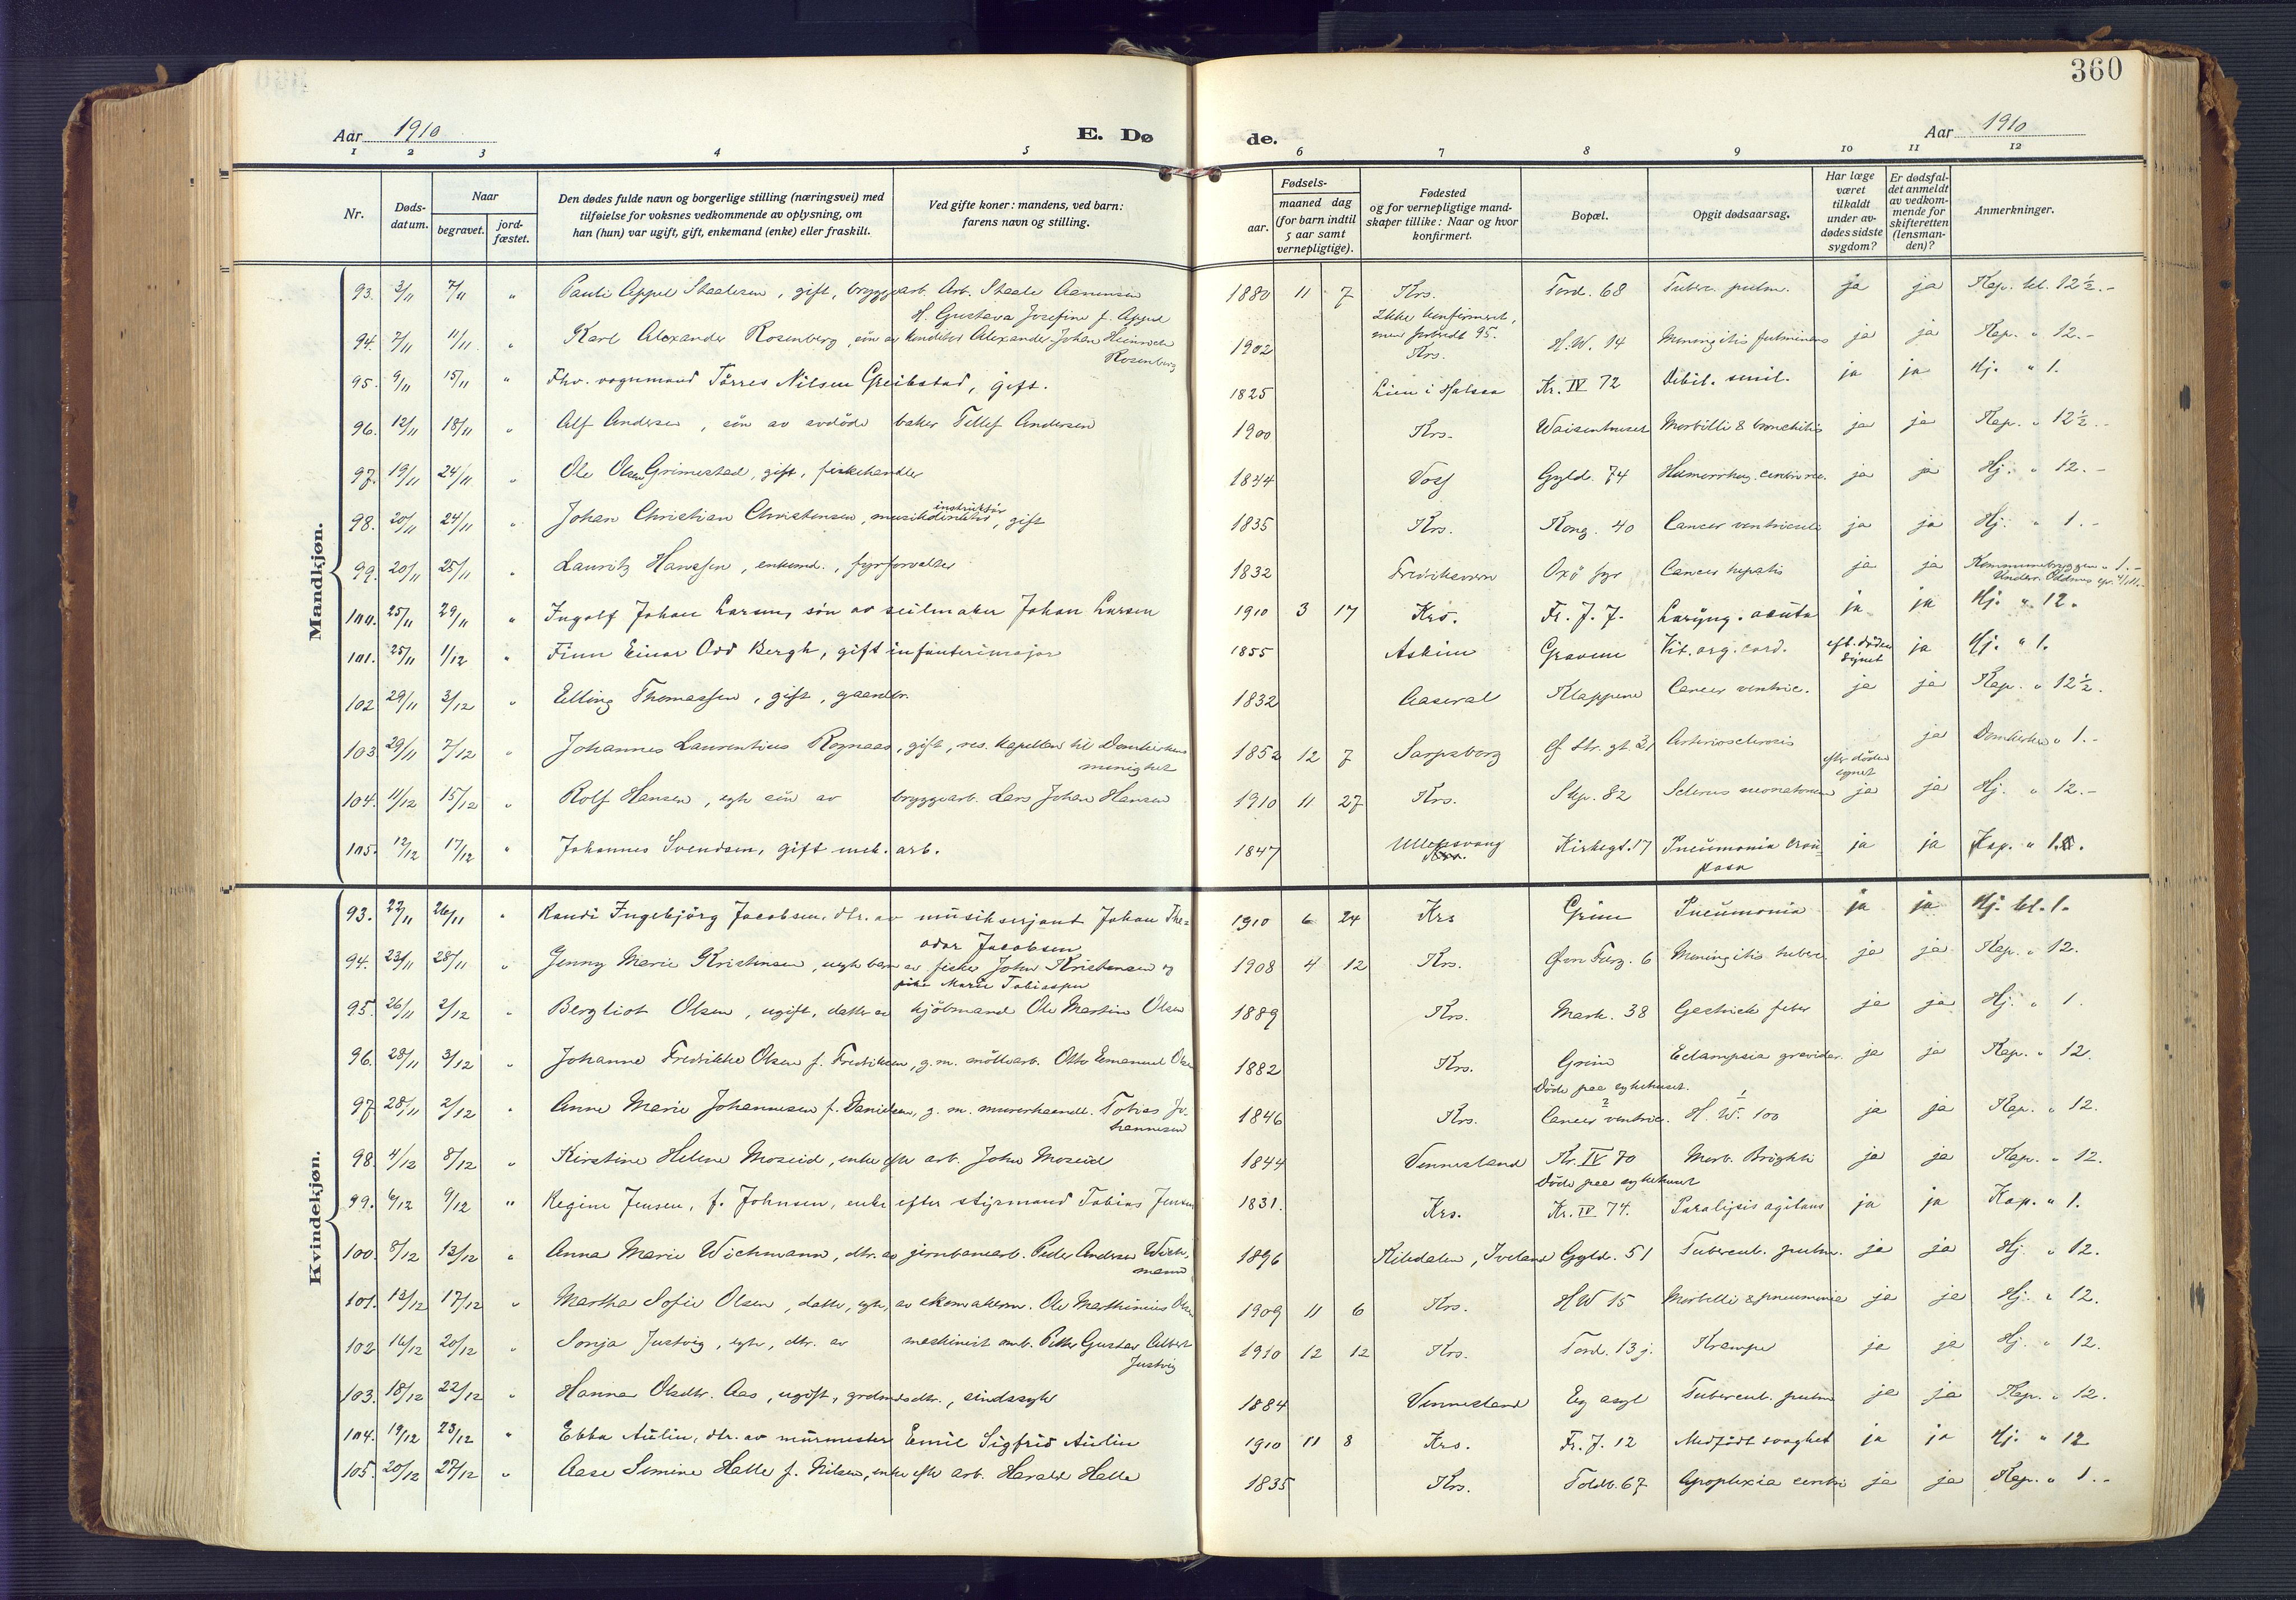 360
Aar 1910
E. Dø
de.
Aar 1910
1 2 3 4 5 6 7 8 9 10 11 12
Nr.
Døds-
datum.
Naar
begravet.
jord-
fæstet.
Den dødes fulde navn og borgerlige stilling (næringsvei) med
tilføielse for voksnes vedkommende av oplysning, om
han (hun) var ugift, gift, enkemand (enke) eller fraskilt.
Ved gifte koner: mandens, ved barn:
farens navn og stilling.
Fødsels-
aar.
maaned dag
(for barn indtil
5 aar samt
vernepligtige).
Fødested
og for vernepligtige mand-
skaper tillike: Naar og hvor
konfirmert.
Bopæl.
Opgit dødsaarsag.
Har læge
været
tilkaldt
under av-
dødes sidste
sygdom?
Er dødsfal-
det anmeldt
av vedkom-
mende for
skifteretten
(lensman-
den)?
Anmerkninger.
Mandkjøn.
93. 3/11 7/11 " Pauli Appel Staalesen, gift, bryggearb. Arb. Staale Aanensen 1880 11 7 Krs. Tord. 68 Tuberc. pulm. ja ja Kap. kl. 12½.-
H. Gustava Josefine f. Appel Ikke konfirmert,
94. 7/11 11/11 " Karl Alexander Rosenberg, søn av konditor Alexander Johan Heinrich 1902 Krs. H.W. 14 Meningitis fulminans ja ja Kap. " 12.-
Rosenberg
95. 9/11 15/11 " Fhv. vognmand Tørres Nilsen Greibstad, gift. 1825 Lien i Halsaa Kr. IV 72 Debil. senil. ja ja Hj. " 1.
96. 12/11 18/11 " Alf Andersen, søn av avdøde baker Tellef Andersen 1900 Krs. Waisenhuset Morbilli & bronchitis ja ja Kap. " 12½.-
97. 19/11 24/11 " Ole Olsen Grimestad, gift, fiskehandler 1844 Voss Gyld. 74 Hæmorrhag. ja ja Hj. " 12.-
instruktør
98. 20/11 24/11 " Johan Christian Christensen, musikdirektør, gift 1835 Krs. Kong. 40 Cancer ventriculi ja ja Hj. " 1.-
99. 20/11 25/11 " Lauritz Hanssen, enkemd., fyrforvalter 1832 Fredriksvern Oxø fyr Cancer hepatis ja ja Kommunebryggen " 1.-
100. 25/11 29/11 " Ingolf Johan Larsen, søn av seilmaker Johan Larsen 1910 3 17 Krs. Fr. J. 7. Laryng. acuta ja ja Hj. " 12.
101. 25/11 1/12 " Finn Einar Odd Bergh, gift infanterimajor 1855 Askim Gravene Vit. org. cord. eft. døden synet ja Hj. " 1.
102 29/11 3/12 " Elling Thomassen, gift, gaardbr. 1832 Aaseral Klappene Cancer ventric. ja ja Kap. " 12½.
103 29/11 7/12 " Johannes Laurentius Rognaas, gift, res. kapellan til Domkirkens 1852 12 7 Sarpsborg Ø. Str. gt. 31 Arteriosclerosis efter døden synet ja Domkirken " 1.-
menighet
104. 11/12 15/12 " Rolf Hansen, egte søn av bryggearb. Lars Johan Hansen 1910 11 27 Krs. Skp. 82 Sclerus neonatorum ja ja Hj. " 12.-
105. 12/12 17/12 " Johannes Svendsen, gift mek. arb. 1847 Ullensvang Kirkegt. 17 Pneumonia crou- ja ja Kap. " 1.
posa
Kvindekjøn.
93. 22/11 26/11 " Randi Ingebjørg Jacobsen, dtr. av musikserjant Johan The= 1910 6 24 Krs Grim Pneumonia ja ja Hj. kl. 1.
odor Jacobsen
94. 23/11 28/11 " Jenny Marie Kristensen, uegte barn av fisker John Kristensen og 1908 4 12 Krs. Øvre Torg. 6 Meningitis tuberc. ja ja Kap. " 12.
pike Marie Tobiassen
95. 26/11 2/12 " Bergliot Olsen, ugift, datter av kjøbmand Ole Martin Olsen 1889 Krs. Mark. 38 Gastrisk feber ja ja Hj. " 1.
96. 28/11 3/12 " Johanne Fredrikke Olsen f. Fredriksen, g.m. møllearb. Otto Emanuel Olsen 1882 Krs. Grim Eclampsia gravidar. ja ja Kap. " 12.
Døde paa sykehuset.
97 28/11 2/12 " Anne Marie Johannesen f. Danielsen, g. m. murerhaandl. Tobias Jo- 1846 Krs. Cancer ventric. H. W. 100 ja ja Kap. " 12.
hannesen
98 4/12 8/12 " Kirstine Helene Moseid, enke efter arb. John Moseid 1844 Vennesland Kr. IV 70 Morb. Brightii ja ja Kap. " 12.
Døde paa sykehuset
99. 6/12 9/12 " Regine Jensen, f. Johnsen, enke efter styrmand Tobias Jensen 1831. Krs. Kr. IV 74. Paralysis agitans ja ja Kap. " 1.
100. 8/12 13/12 " Anna Marie Wichmann, dtr. av jernbanearb. Peder Andersen Wich- 1896 Kiledalen, Iveland Gyld. 51 Tubercul. pulm. ja ja Hj. " 12.
mann
101. 13/12 17/12 " Martha Sofie Olsen, datter, egte, av skomakerm. Ole Marthinius Olsen 1909 11 6 Krs. H W 15 Morbilli & pneumonie ja ja Hj. " 12.
102 16/12 20/12 " Sonja Justvig, egte, dtr. av maskinist Petter Gustav Albert 1910 12 12 Krs. Tord. 13 j. Krampe ja ja Hj. " 12.
Justvig
103. 18/12 22/12 " Hanna Olsdtr. Aas, ugift, grdmdsdtr., sindssyk 1884 Vennesland Eg asyl Tubercul. pulm ja ja Kap. " 12.
104. 19/12 23/12 " Ebba Aulin, dtr. av murmester Emil Sigfrid Aulin 1910 11 8 Krs. Fr. J. 12 Medfødt svaghet ja ja Hj. " 12
105. 20/12 27/12 " Aase Simine Halle f. Nilsen, enke efter arb. Harald Halle 1835 Krs. Toldb. 67 Apoplexia cerebri ja ja Kap. " 1.-